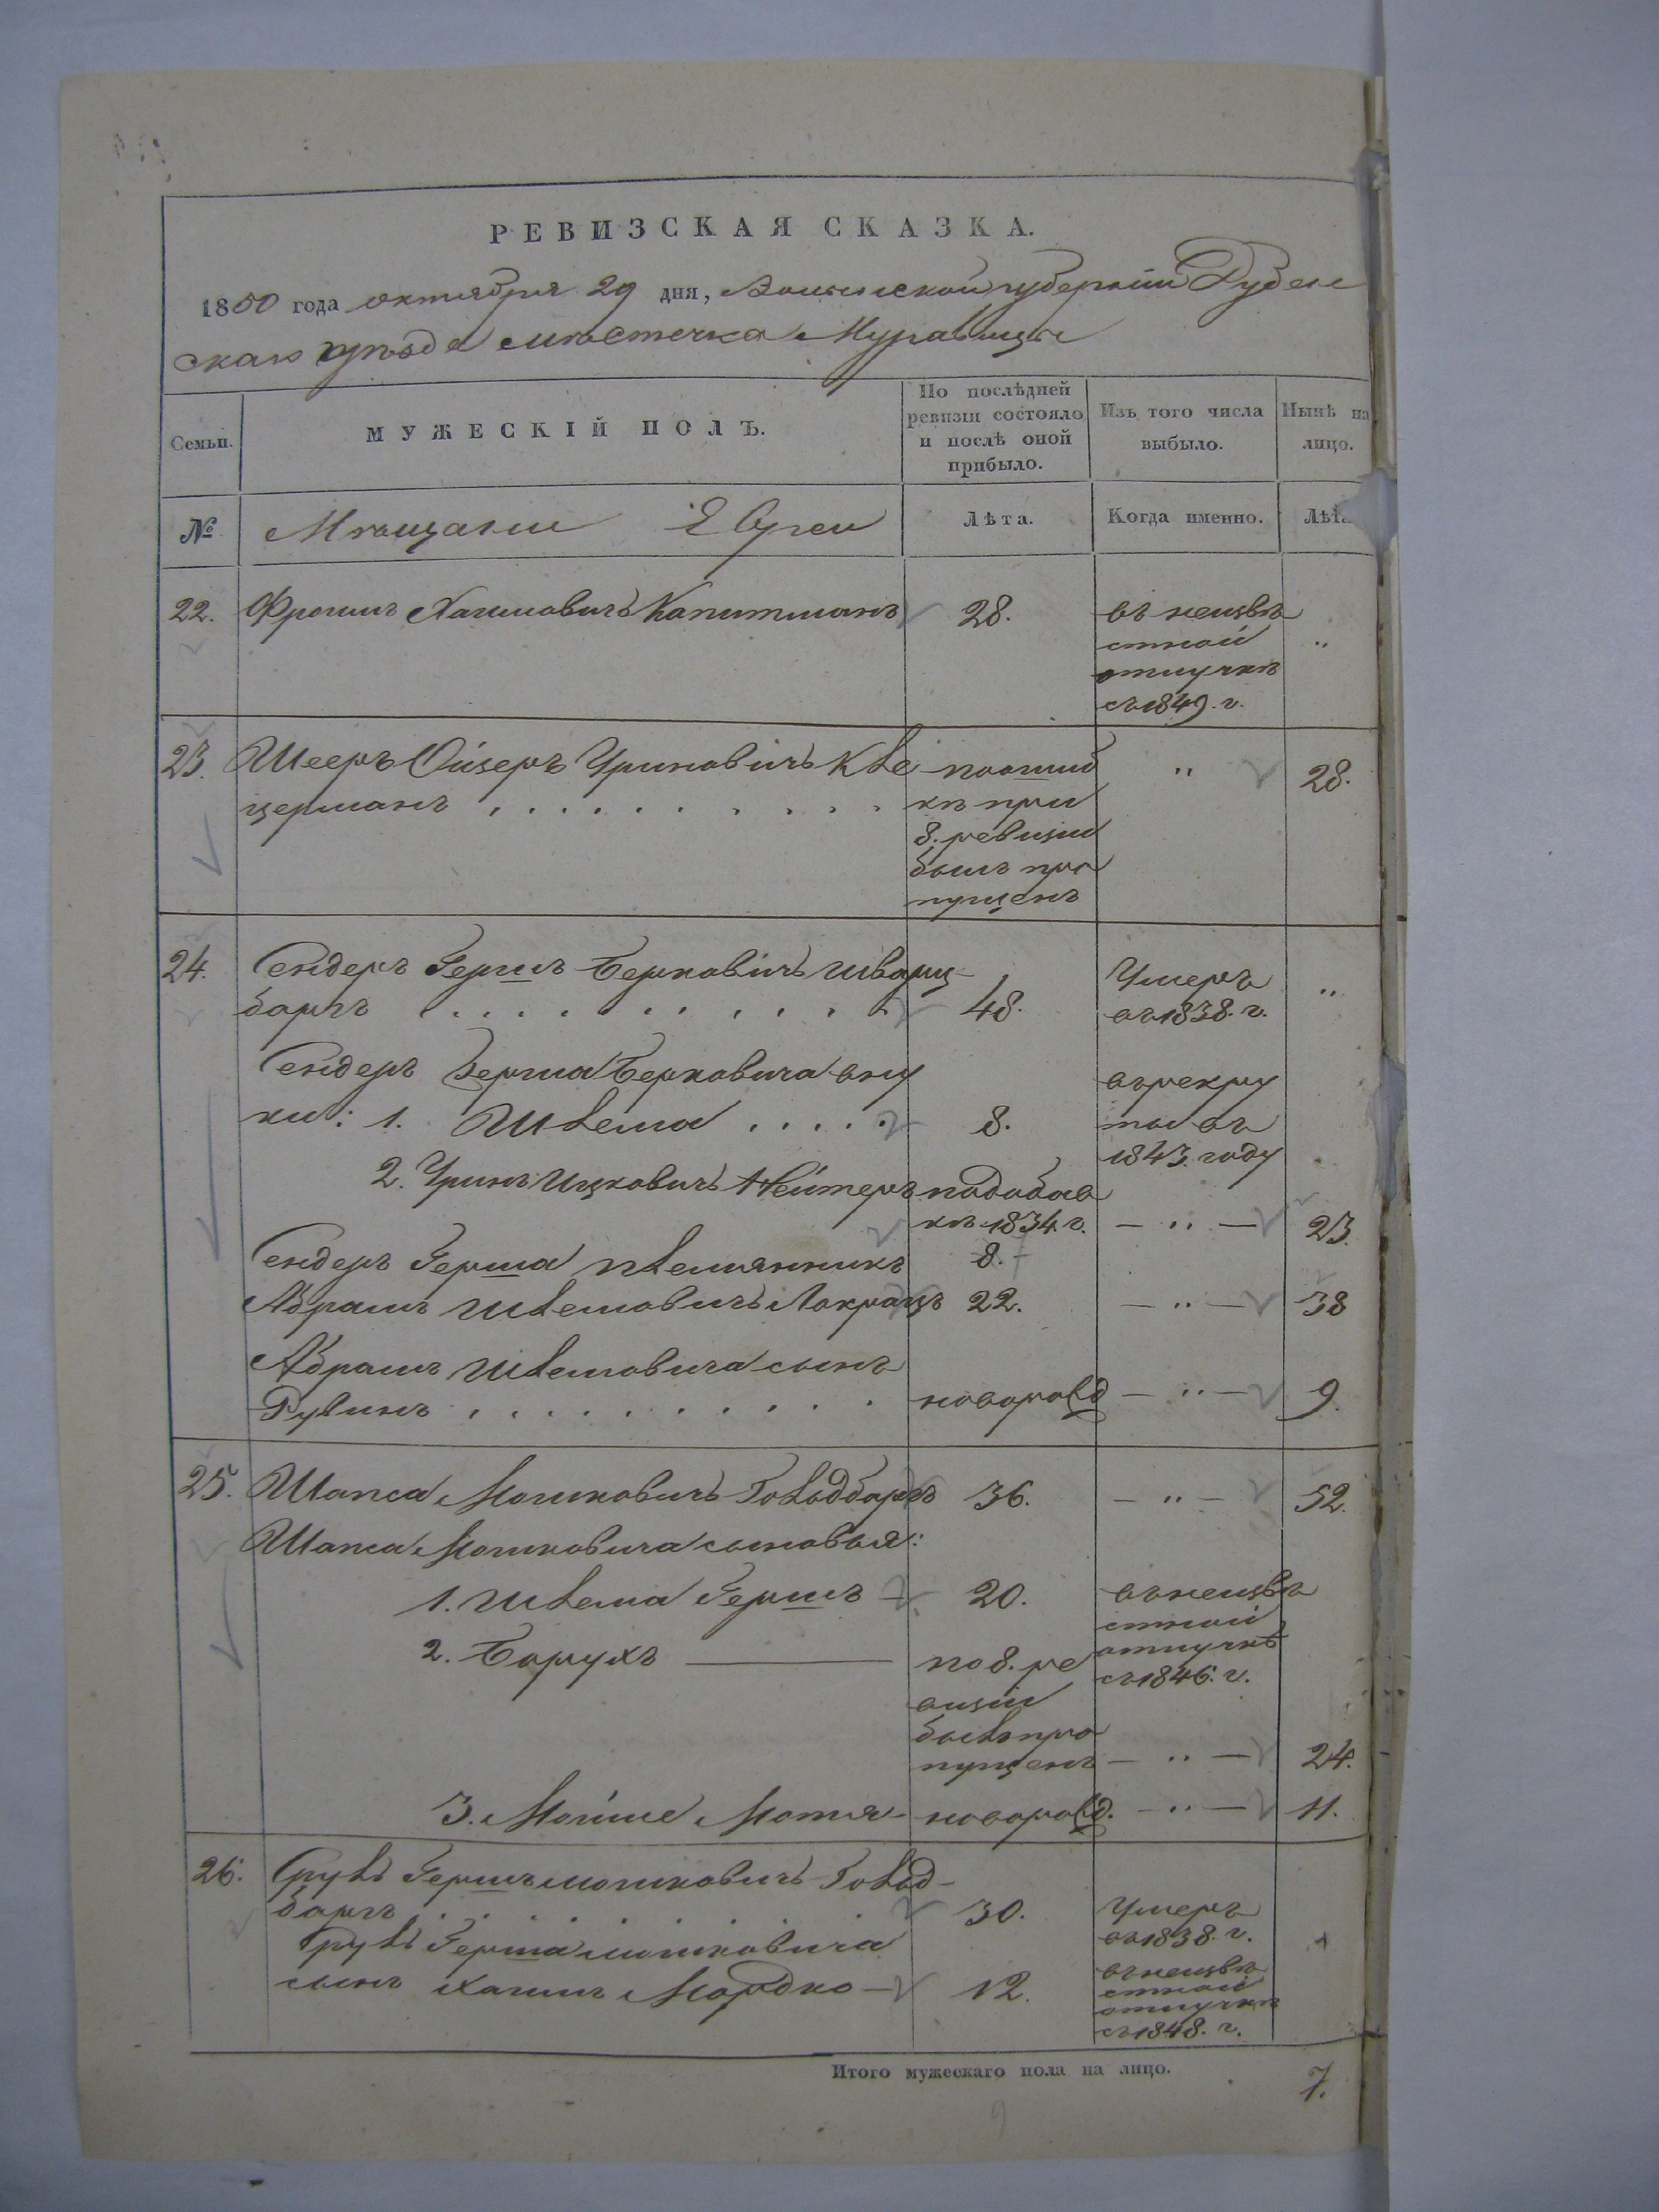 РЕВИЗСКАЯ СКАЗКА.
1850 года октября 29 дня, Волынской губернии Дубен
скаго уѣзда мѣстечка Муравицы
Семьи.
МУЖЕСКІЙ ПОЛЪ.
По послѣдней ревизіи состояло и послѣ оной прибыло.
Изъ того числа выбыло.
Нынѣ на лицо.
№
Мѣщане Евреи
Лѣта.
Когда именно.
Лѣта
22. Фроимъ Хаимовичъ Капитманъ 28. въ неизвѣ
стной "
отлучкѣ
съ 1849. г.
23. Шееръ Ойзеръ Уриновичъ Кле по ошиб " 28.
церманъ . . . . . . . . кѣ при
8. ревизии
былъ про
пущенъ
24. Сендеръ Гершъ Берковичъ Шварц- Умеръ "
баргъ . . . . . . . . . 48. въ 1838. г.
Сендеръ Герша Берковича вну въ рекру
ки: 1. Шлема . . . . . 8. ты въ
1843. году
2. Уринъ Ицковичъ Нейтеръ по добав
кѣ 1834 г. — " — 23.
Сендеръ Герша племянникъ 8.
Абрамъ Шлемовичъ Локрацъ 22. — " — 38
Абрамъ Шлемовича сынъ
Рувинъ . . . . . . . . новорожд — " — 9.
25. Шапса Мошковичъ Голодбаргъ 36. — " — 52.
Шапса Мошковича сыновья:
1. Шлема Гершъ — 20. въ неизвѣ
стной
2. Борухъ — по 8. ре отлучкѣ
съ 1846. г.
визіи
былъ про
пущенъ — " — 24.
3. Мойше Мотя — новорожд. — " — 11.
26. Сруль Гершъ Мошковичъ Голод-
баргъ . . . . . . . . 30. Умеръ
въ 1838. г.
Сруль Герша Мошковича
сынъ Хаимъ Мордко — 12. въ неизвѣ
стной
отлучкѣ
съ 1848. г.
Итого мужескаго пола на лицо. 7.
9